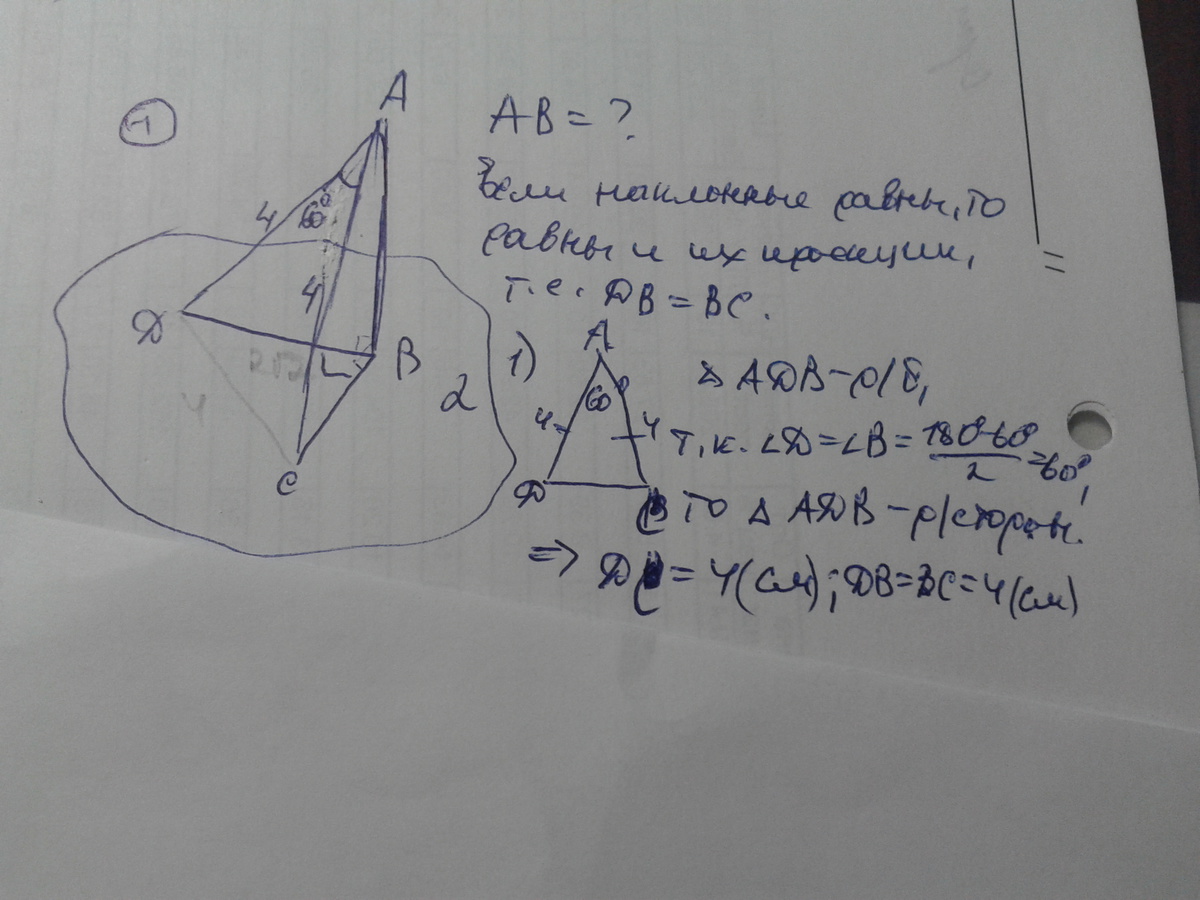 1
A
AB = ?
Если наклонные равны, то
равны и их проекции,
т.е. DB = BC.
4
60°
4
D
B
L
2
C
4
1)
A
60°
4
4
D
C
△ ADB – р/б,
т.к. ∠D = ∠B = 180°-60°/2 = 60°,
то △ ADB – р/сторон.
=> DC = 4(см); DB = BC = 4(см)